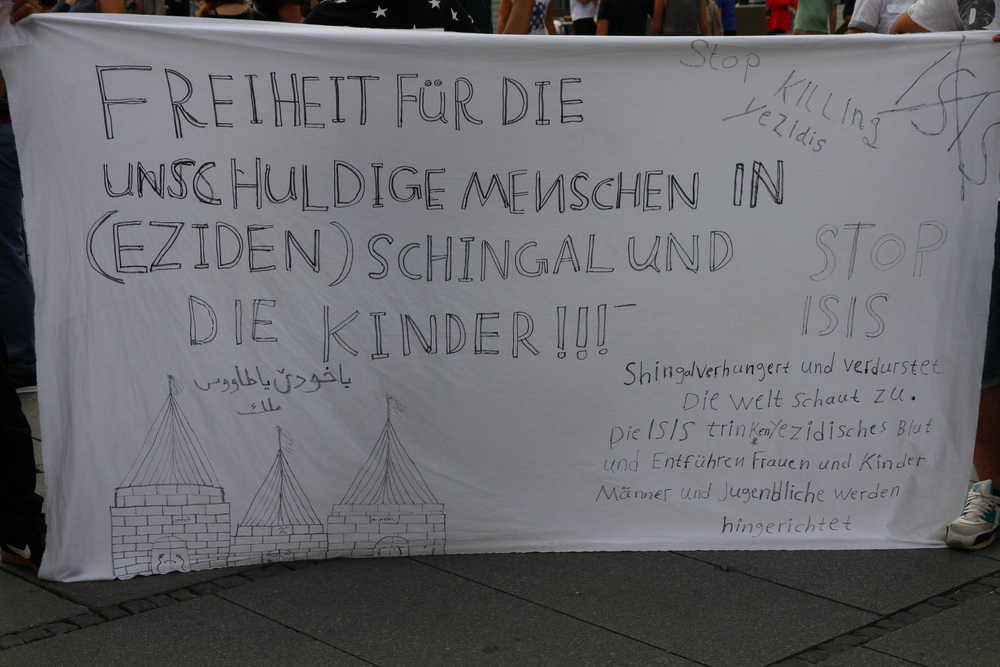 FREIHEIT FÜR DIE
UNSCHULDIGE MENSCHEN IN
(EZIDEN) SCHINGAL UND
DIE KINDER!!!
Stop
KILLing
Yezidis
ISIS
STOP
ISIS
ياخودێ ياطاووس
ملك
Shingal verhungert und verdurstet
Die Welt schaut zu.
Die ISIS trinken Yezidisches Blut
und Entführen Frauen und Kinder
Männer und Jugendliche werden
hingerichtet